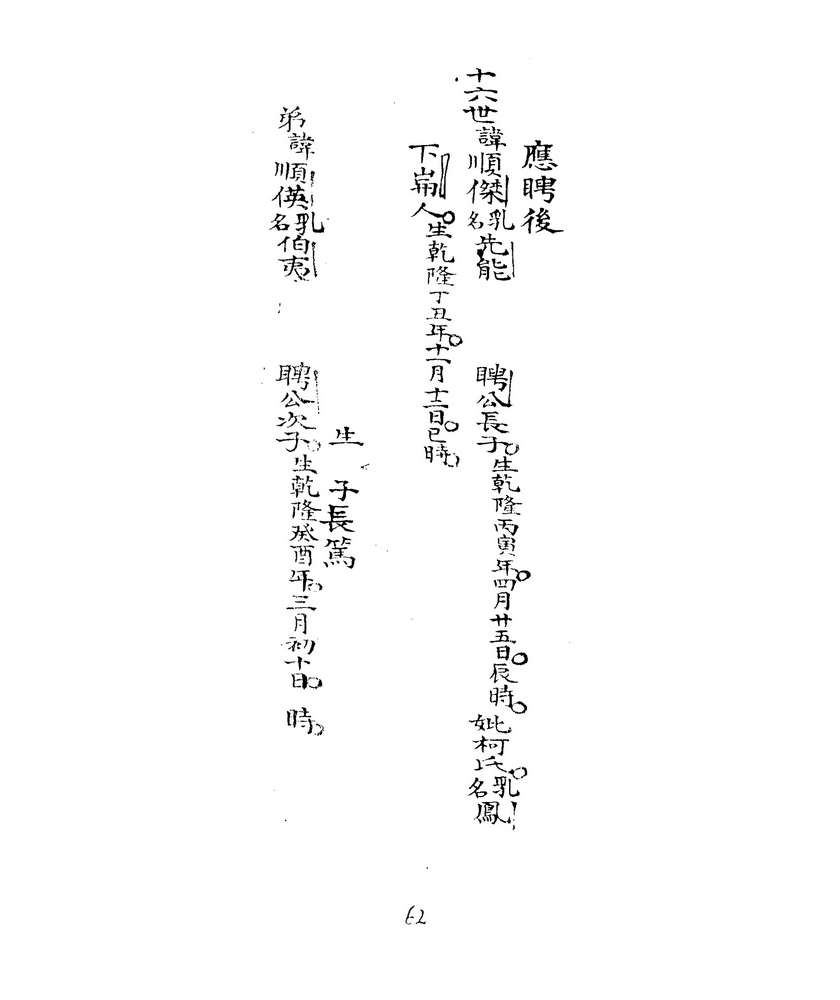 應聘後
十六世諱順傑乳名先能 聘公長子。生乾隆丙寅年。四月廿五日。辰時。妣柯氏。乳名鳳
下崙人。生乾隆丁丑年。十一月十二日。巳時。
生 子長篤
弟諱順英乳名伯夷 聘公次子。生乾隆癸酉年。三月初十日。 時。
62